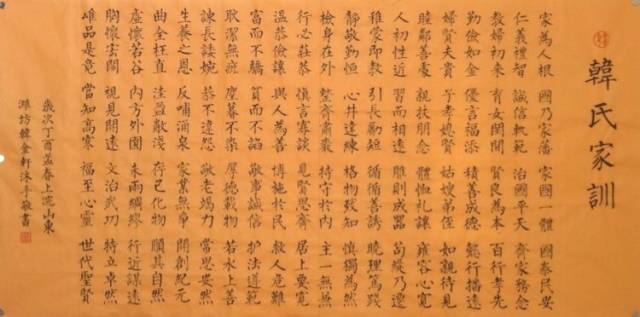 韓氏家訓
家為人根 國乃家藩 家國一體 國泰民安
仁義禮智 誠信軌範 治國平天 齊家務念
教婦初來 育女閨閫 賢良為本 百行孝先
勤儉如金 優言福添 積善成德 懿行播遠
婦賢夫貴 子孝媳賢 姑嫂弟侄 如親待見
睦鄰善 親扶朋念 體恤礼讓 雍容心寬
人初性近 習而相遠 雕則成器 苟縱乃遷
稚蒙即教 引長勵短 循循善誘 曉理篤踐
靜敬勤恒 心 達練 格物致知 慎獨為然
檢身在外 整齊肅嚴 持守於内 主一無
行必莊恭 慎言寡愆 見賢思齊 居上要寬
溫恭儉讓 與人為善 博施於民 救人危難
富而不驕 貧而不諂 敬事誠信 护法遵範
耿潔無疵 不染 厚德載物 若水上善
諫長 婉 恭不違怨 敬老竭力 常思安然
生養之恩 反哺涌泉 家業無爭 開創紀元
曲全枉直 洼盈敝 存己化物 順其自然
虛懷若谷 内方外圓 未雨綢繆 行近謀遠
胸懷宏闊 視見開遠 文治武功 特立卓然
唯品是竟 當知高寒 福至心靈 世代聖賢
歲次丁酉孟春上浣山東
濰坊韓金軒沐手敬書